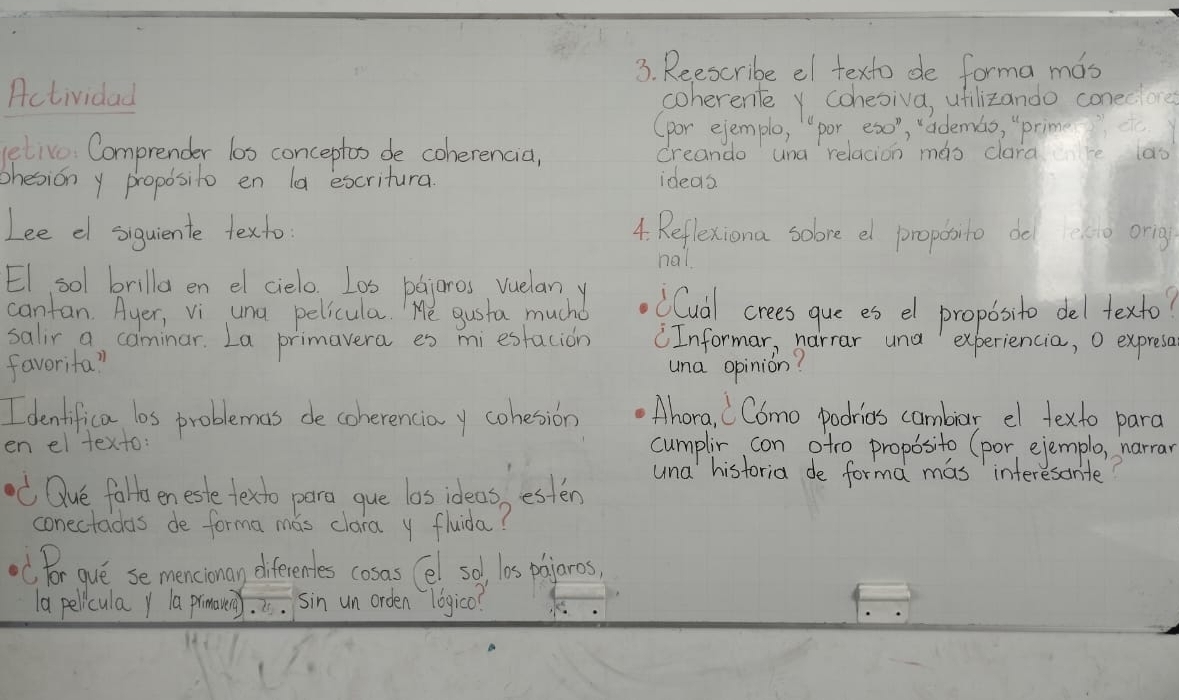 Actividad
jetivo: Comprender los conceptos de coherencia,
ohesión y propósito en la escritura.
Lee el siguiente texto:
El sol brilla en el cielo. Los pájaros vuelan y
cantan. Ayer, vi una película. Me gusta mucho
salir a caminar. La primavera es mi estación
favorita"
Identifica los problemas de coherencia y cohesión
en el texto:
•¿Qué falta en este texto para que las ideas estén
conectadas de forma más clara y fluida?
•¿Por qué se mencionan diferentes cosas (el sol, los pájaros,
la película y la primavera) sin un orden lógico?
3. Reescribe el texto de forma más
coherente y cohesiva, utilizando conectores
(por ejemplo, "por eso", "además, "primero", etc. y
creando una relación más clara entre las
ideas
4. Reflexiona sobre el propósito del texto origi-
nal.
•¿Cuál crees que es el propósito del texto?
¿Informar, narrar una experiencia, o expresa
una opinión?
•Ahora, ¿Cómo podrías cambiar el texto para
cumplir con otro propósito (por ejemplo, narrar
una historia de forma más interesante?